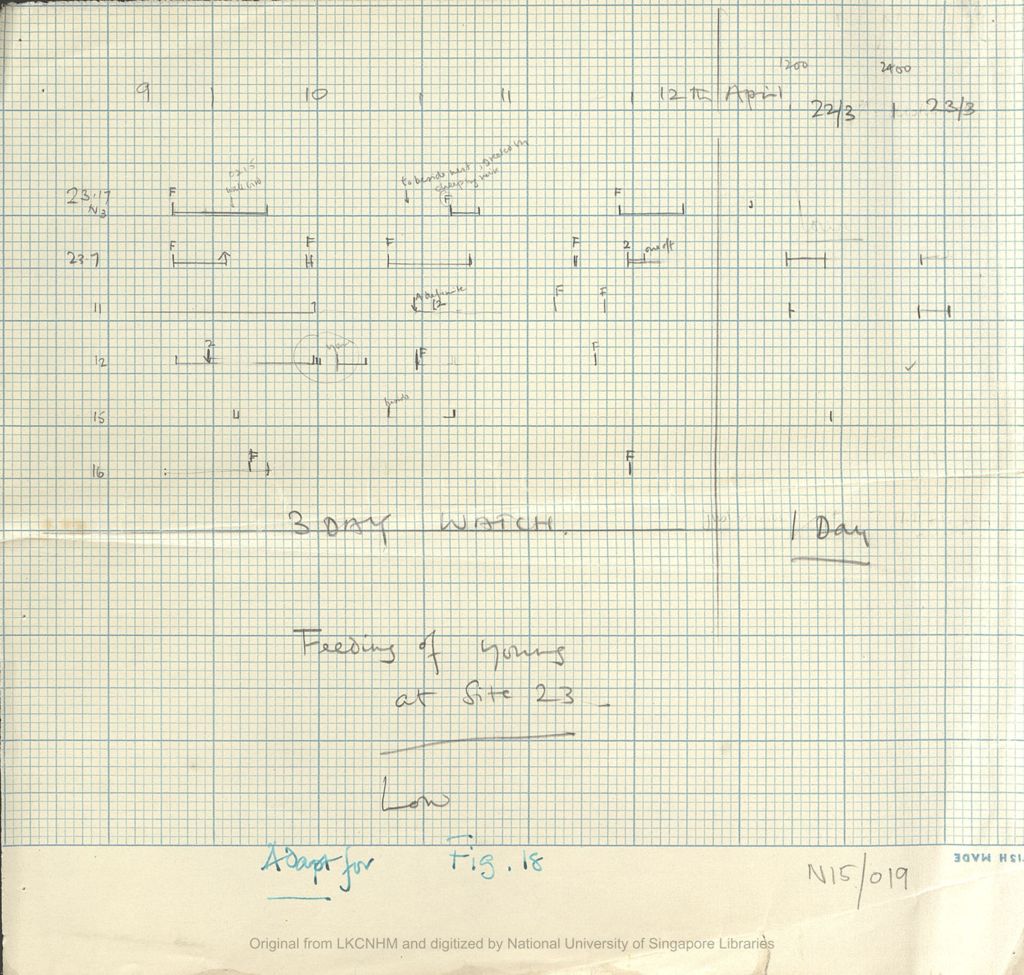 1200 2400
9 10 11 12th April 22/3 23/3
0215
to beside nest,
sleeping
F F F
23.17
N3
F F F F 2 one off
23.7
11 F F
2 F F
12
15
F F
16
3 DAY WATCH. 1 Day
Feeding of young
at Site 23
Low
Adapt for Fig. 18
N15/019
ISH MADE
Original from LKCNHM and digitized by National University of Singapore Libraries